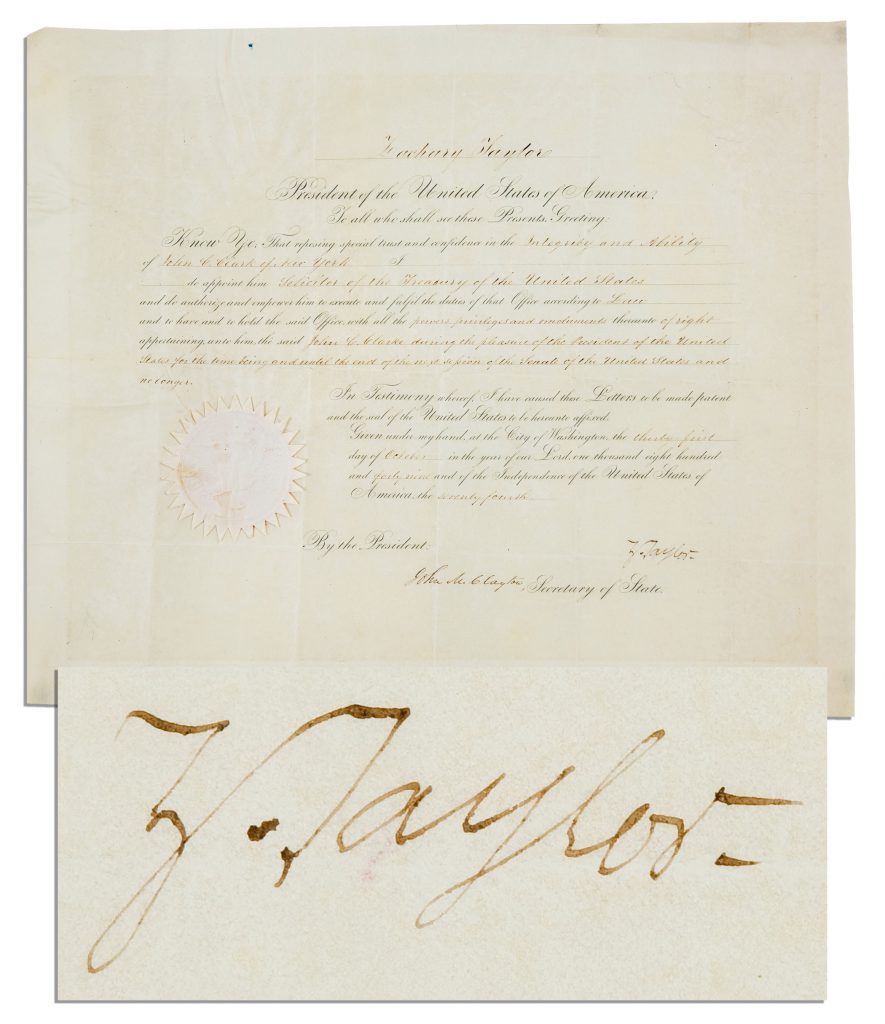 Zachary Taylor
President of the United States of America.
To all who shall see these Presents, Greeting:
Know Ye, That reposing special trust and confidence in the Integrity and Ability
of John C. Clark of New York I
do appoint him Solicitor of the Treasury of the United States
and do authorize and empower him to execute and fulfil the duties of that Office according to Law
and to have and to hold the said Office, with all the powers privileges and emoluments thereunto of right
appertaining, unto him, the said John C. Clarke during the pleasure of the President of the United
States for the time being and until the end of the next session of the Senate of the United States and
no longer.
In Testimony whereof, I have caused these Letters to be made patent
and the seal of the United States to be hereunto affixed.
Given under my hand, at the City of Washington, the thirty first
day of October in the year of our Lord, one thousand eight hundred
and forty nine and of the Independence of the United States of
America, the seventy fourth
By the President:
Z. Taylor
John M. Clayton, Secretary of State.
Z. Taylor